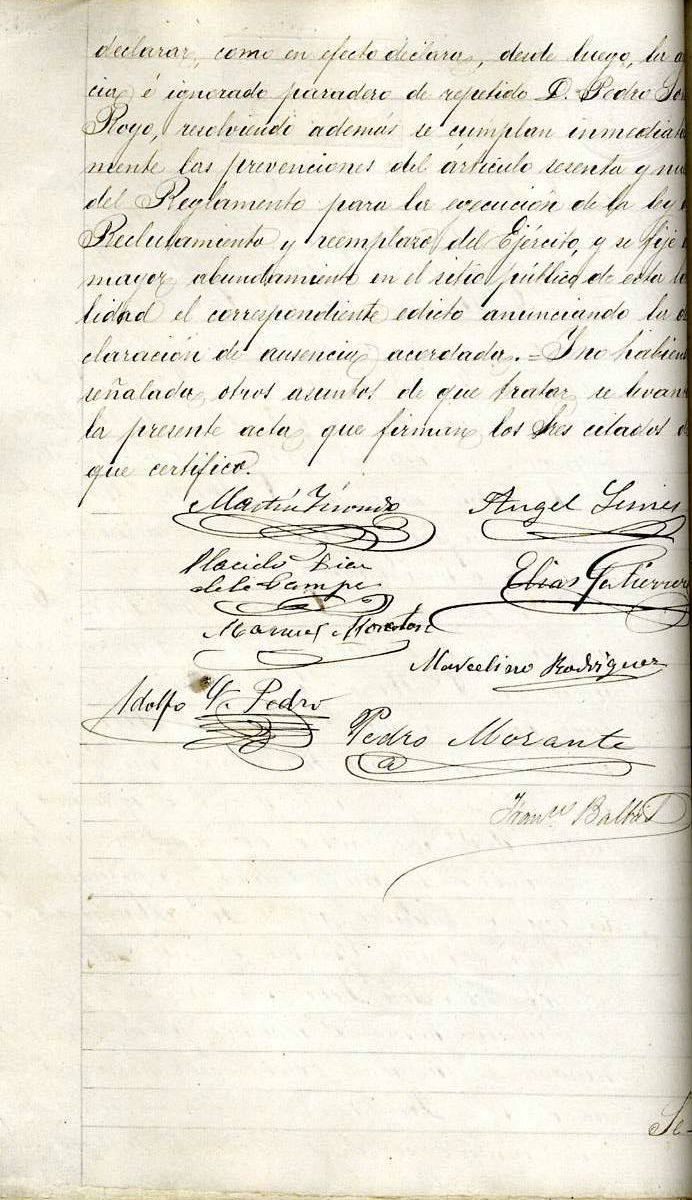 declarar, como en efecto declara, desde luego, la a
cia é ignorado paradero de repetido D. Pedro
Royo, resolviendo además se cumplan inmediata
mente las prevenciones del artículo sesenta y nu
del Reglamento para la ejecución de la ley
Reclutamiento y reemplazo del Ejército, y se fije
mayor abundamiento en el sitio público de esta lo
lidad el correspondiente edicto anunciando la de
claración de ausencia acordada. = Y no habiend
señalado otros asuntos de que tratar se levant
la presente acta que firman los Sres citados d
que certifico.
Martín Angel
Placido Diez
de la Campa Elias Gutierrez
Manuel
Marcelino Rodriguez
Adolfo G. Pedro
Pedro Morante
Franco Balbas
Se-